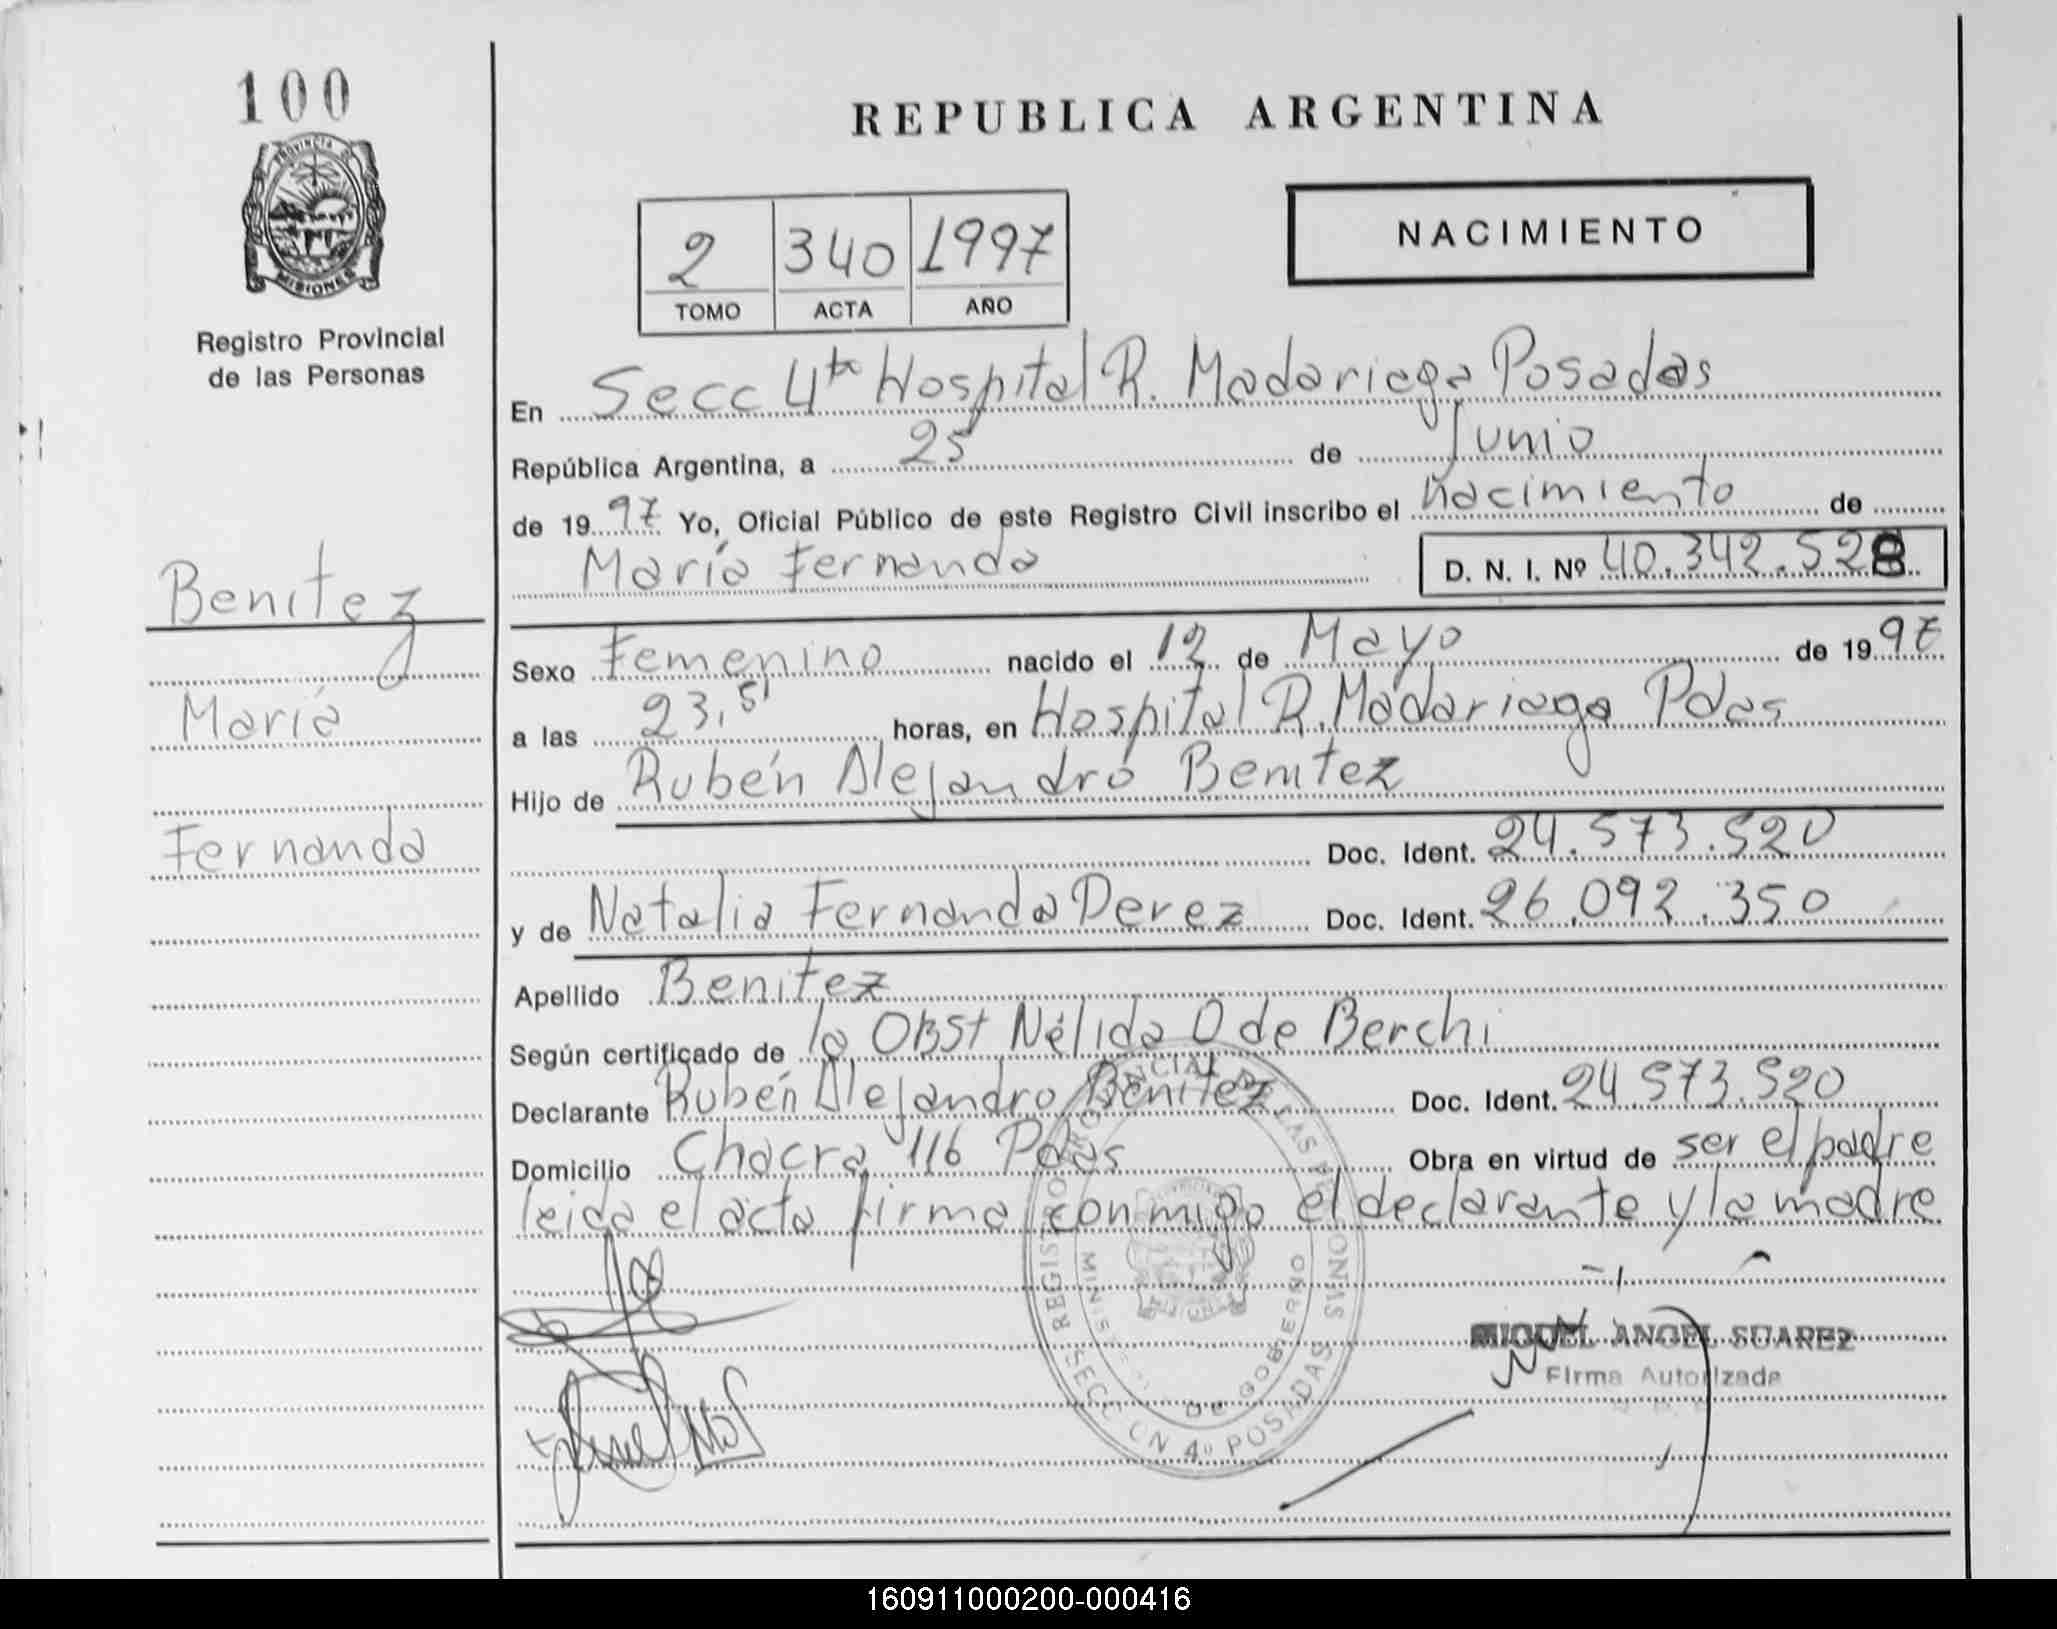 100
PROVINCIA DE
MISIONES
Registro Provincial
de las Personas
Benitez
María
Fernanda
REPUBLICA ARGENTINA
NACIMIENTO
2 340 1997
TOMO ACTA AÑO
En Secc 4ta Hospital R. Madariaga Posadas
República Argentina, a 25 de Junio
de 1997 Yo, Oficial Público de este Registro Civil inscribo el nacimiento de
María Fernanda D. N. I. Nº 40.342.528
Sexo Femenino nacido el 12 de Mayo de 1997
a las 23,51 horas, en Hospital R. Madariaga Pdas
Hijo de Rubén Alejandro Benitez
Doc. Ident. 24.573.520
y de Natalia Fernanda Perez Doc. Ident. 26.092.350
Apellido Benitez
Según certificado de la OBST Nélida O de Berchi
Declarante Rubén Alejandro Benitez Doc. Ident. 24.573.520
Domicilio Chacra 116 Pdas Obra en virtud de ser el padre
leida el acta firma conmigo el declarante y la madre
MIGUEL ANGEL SUAREZ
Firma Autorizada
DE GOBIERNO
4º POSADAS
160911000200-000416